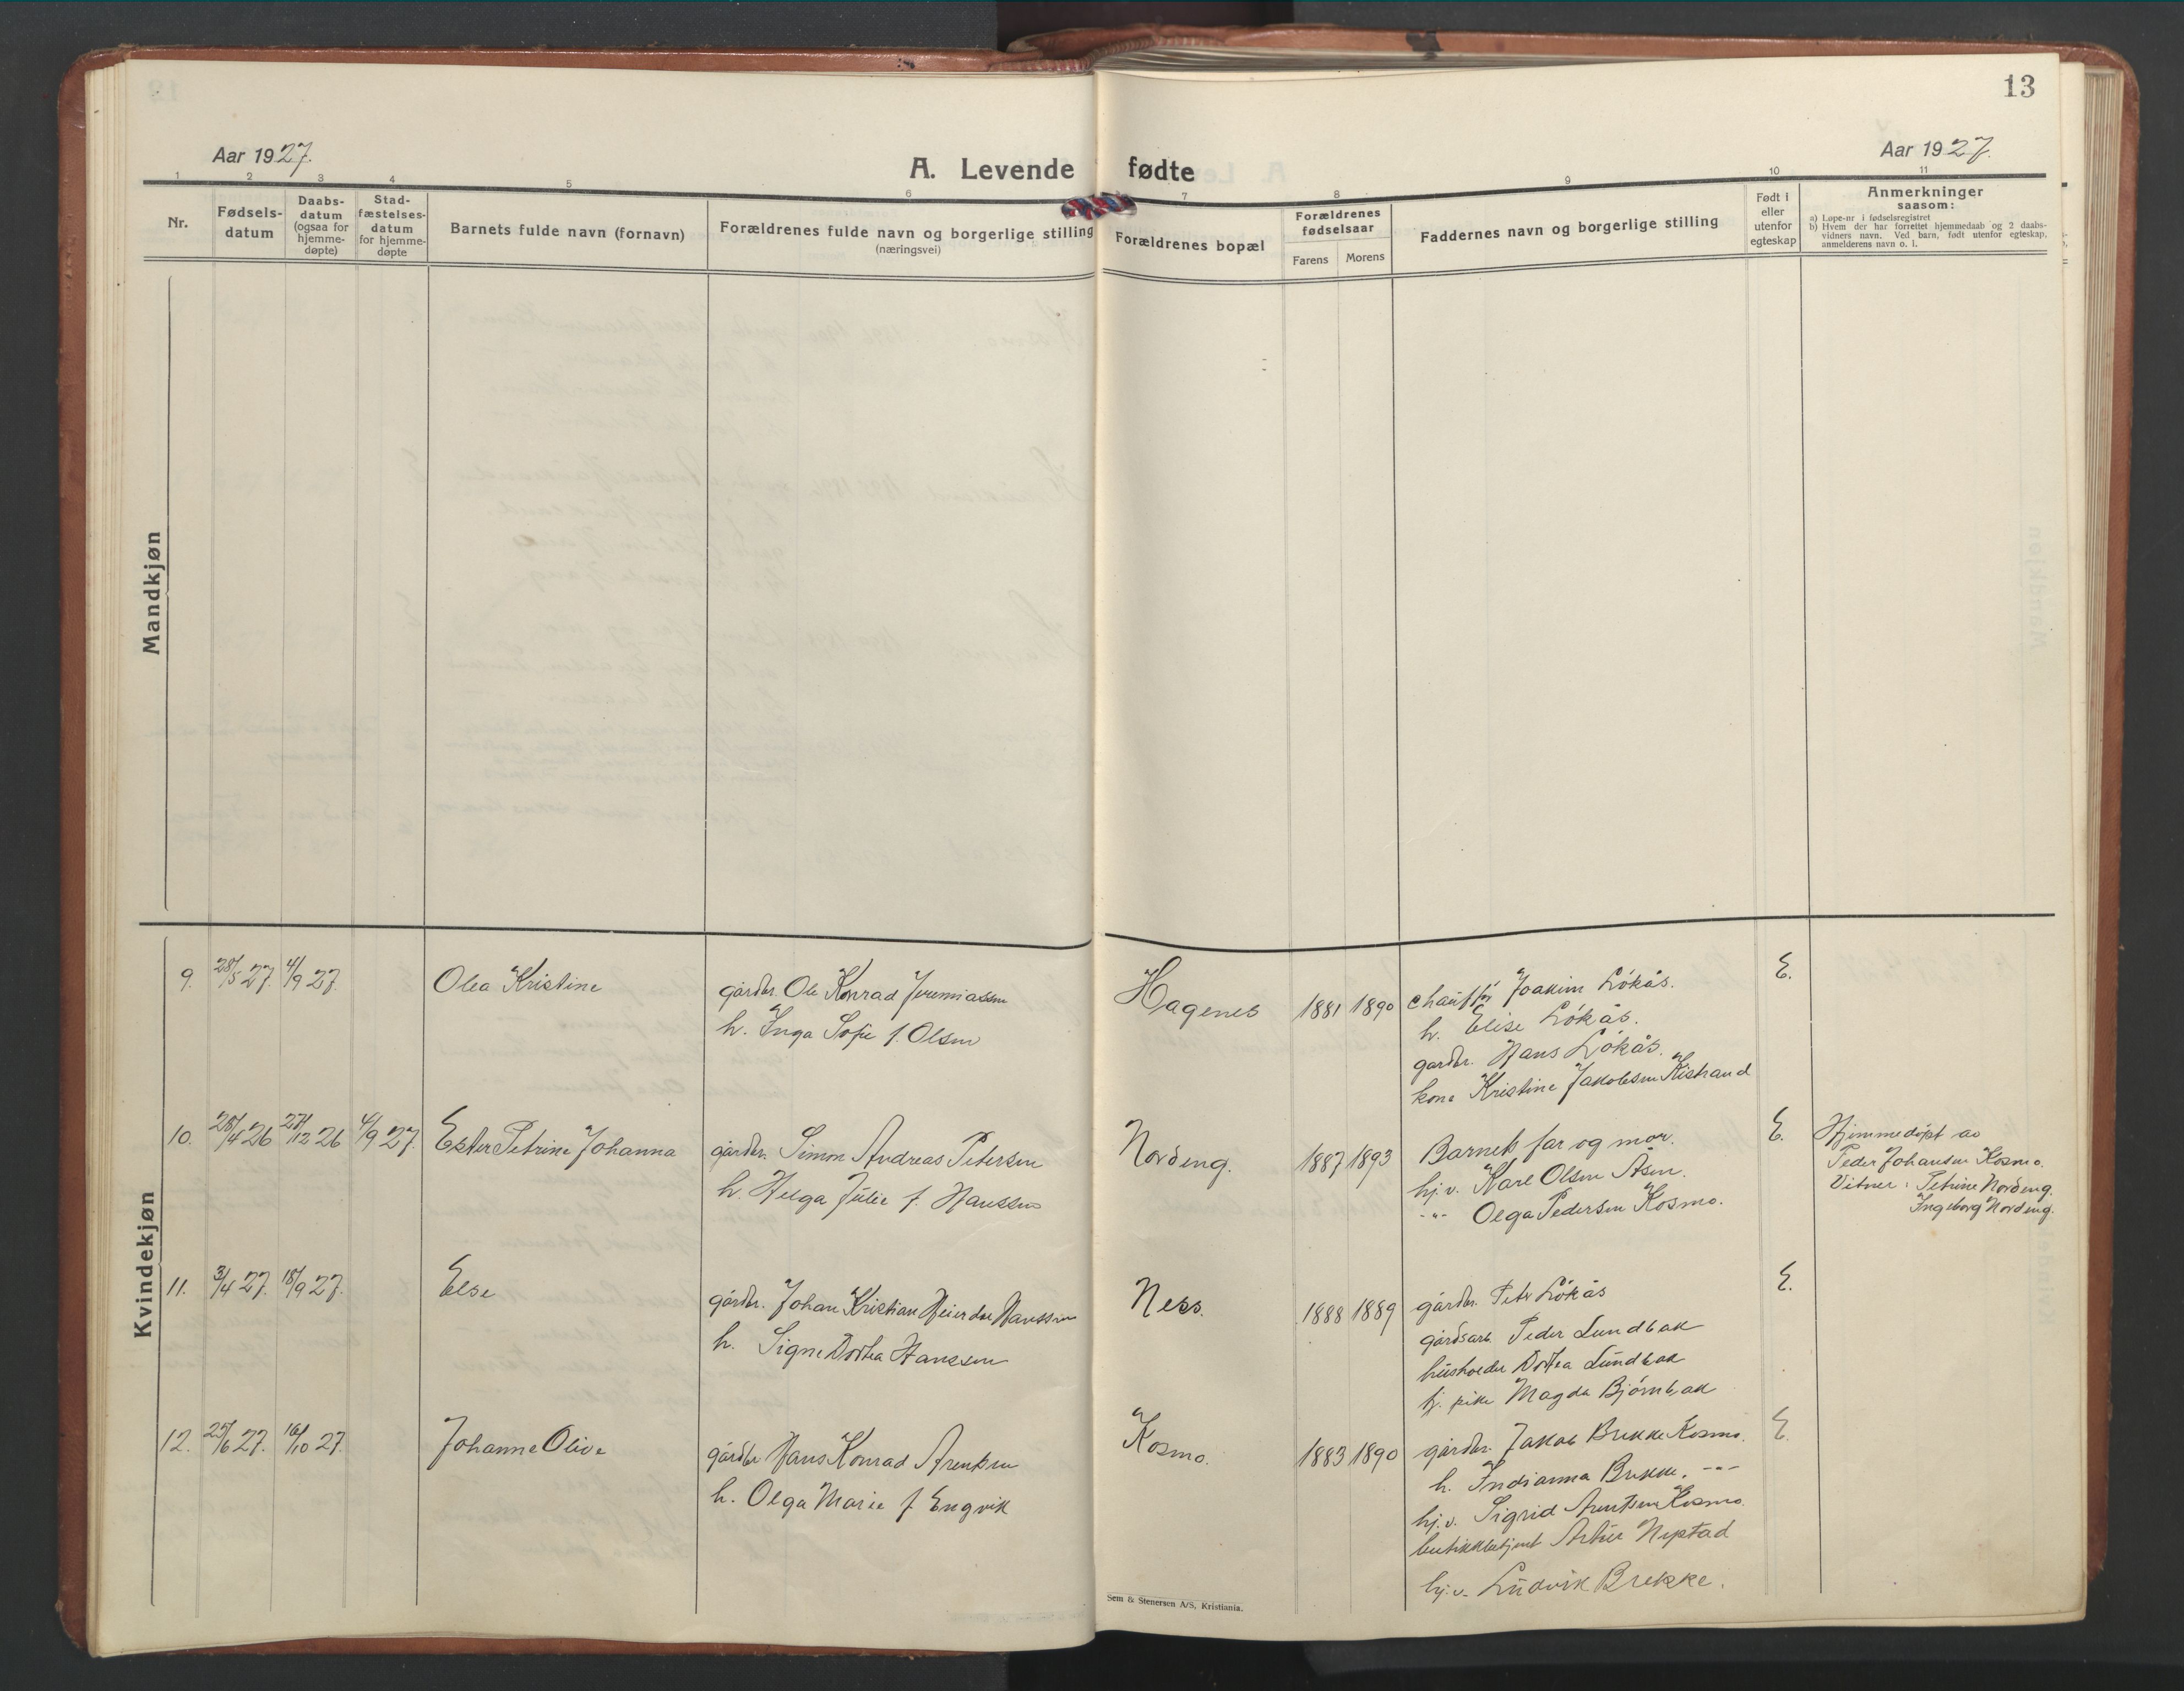 13
Aar 1927.
A. Levende fødte
Aar 1927.
1 2 3 4 5 6 7 8 9 10 11
Nr.
Fødsels-
datum
Daabs-
datum
(ogsaa for
hjemme-
døpte)
Stad-
fæstelses-
datum
for hjemme-
døpte
Barnets fulde navn (fornavn)
Forældrenes fulde navn og borgerlige stilling
(næringsvei)
Forældrenes bopæl
Forældrenes
fødselsaar
Farens Morens
Faddernes navn og borgerlige stilling
Født i
eller
utenfor
egteskap
Anmerkninger
saasom:
a) Løpe-nr i fødselsregistret
b) Hvem der har forrettet hjemmedaab og 2 daabs-
vidners navn. Ved barn, født utenfor egteskap,
anmelderens navn o. l.
Mandkjøn
Kvindekjøn
9. 28/5 27. 4/9 27. Olea Kristine
gårdbr. Ole Konrad Jeremiassen
h. Inga Sofie f. Olsen
Hagenes 1881 1890
chauffør Joakim Løkås.
h. Elise Løkås.
gårdbr. Hans Løkås.
kone Kristine Jakobsen Kistrand
E.
10. 28/4 26 27/12 26 4/9 27. Ester Petrine Johanna
gårdbr. Simon Andreas Petersen
h. Helga Julie f. Hanssen
Nordeng. 1887 1893
Barnets far og mor.
hj.v. Karl Olsen Åsen.
-"- Olga Pedersen Kosmo.
E.
Hjemmedøpt av
Peder Johansen Kosmo.
Vitner: Petrine Nordeng.
Ingeborg Nordeng.
11. 3/4 27. 18/9 27. Else
gårdbr. Johan Kristian Meierdse Hanssen
h. Signe Dortea Hanssen
Ness. 1888 1889
gårdbr. Peter Løkås
gårdsarb. Peder Lundbak
husholder Dortea Lundbak
hj. pike Magda Bjørnbak
E.
12. 25/6 27. 16/10 27. Johanne Olive
gårdbr Hans Konrad Arentsen
h. Olga Marie f Engvik
Kosmo. 1883 1890
gårdbr. Jakob Brekke Kosmo.
h. Indianna Brekke. -"-
hj.v. Sigrid Arentsen Kosmo.
butikkbetjent Artur Nystad
hj.v. Ludvik Brekke.
E.
Sem & Stenersen A/S, Kristiania.